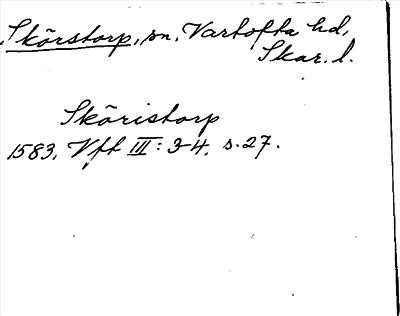 Skörstorp, sn. Vartofta hd,
Skar. l.
Sköristorp
1583. Vft III: 3-4. s. 27.